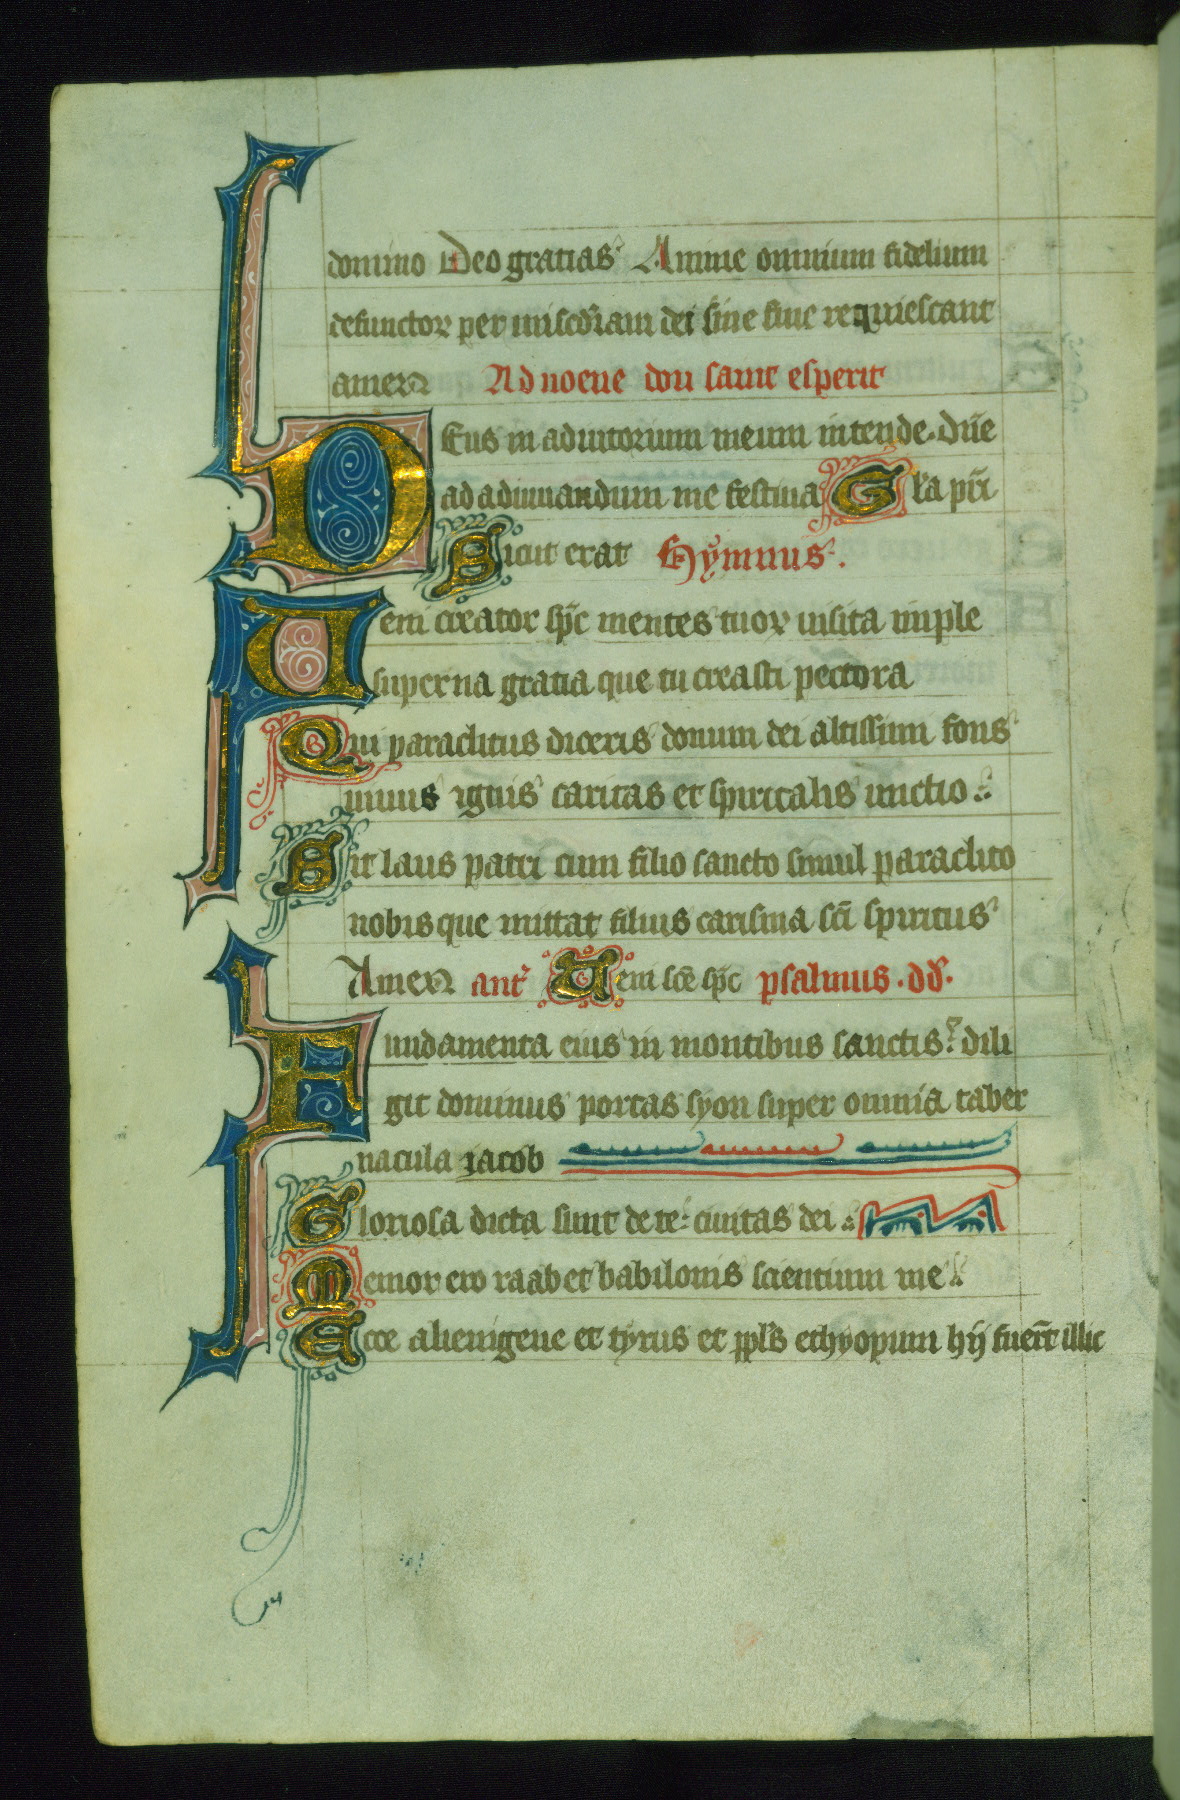 domino Deo gratias Anime omnium fidelium
defunctor per misc̄diam dei sine fine requiescant
amen Ad noene dou saint esperit
DEus in adiutorium meum intende. dn̄e
ad adiuuandum me festina Gl̄a pr̄i
Sicut erat Hymnus.
Ueni creator sp̄c mentes tuor uisita imple
superna gratia que tu creasti pectora
Qui paraclitus diceris donum dei altissim fons
uiuus ignis caritas et spiritalis unctio
Sit laus patri cum filio sancto simul paraclito
nobisque mittat filius carisma sc̄i spiritus
Amen ant Ueni sc̄e sp̄c psalmus. dd̄.
Fundamenta eius in montibus sanctis dili
git dominus portas syon super omnia taber
nacula jacob
Gloriosa dicta sunt de te ciuitas dei
Memor ero raab et babilonis scientium me
Ecce alienigene et tyrus et ppl̄s ethyopum hij fuer̄t illic